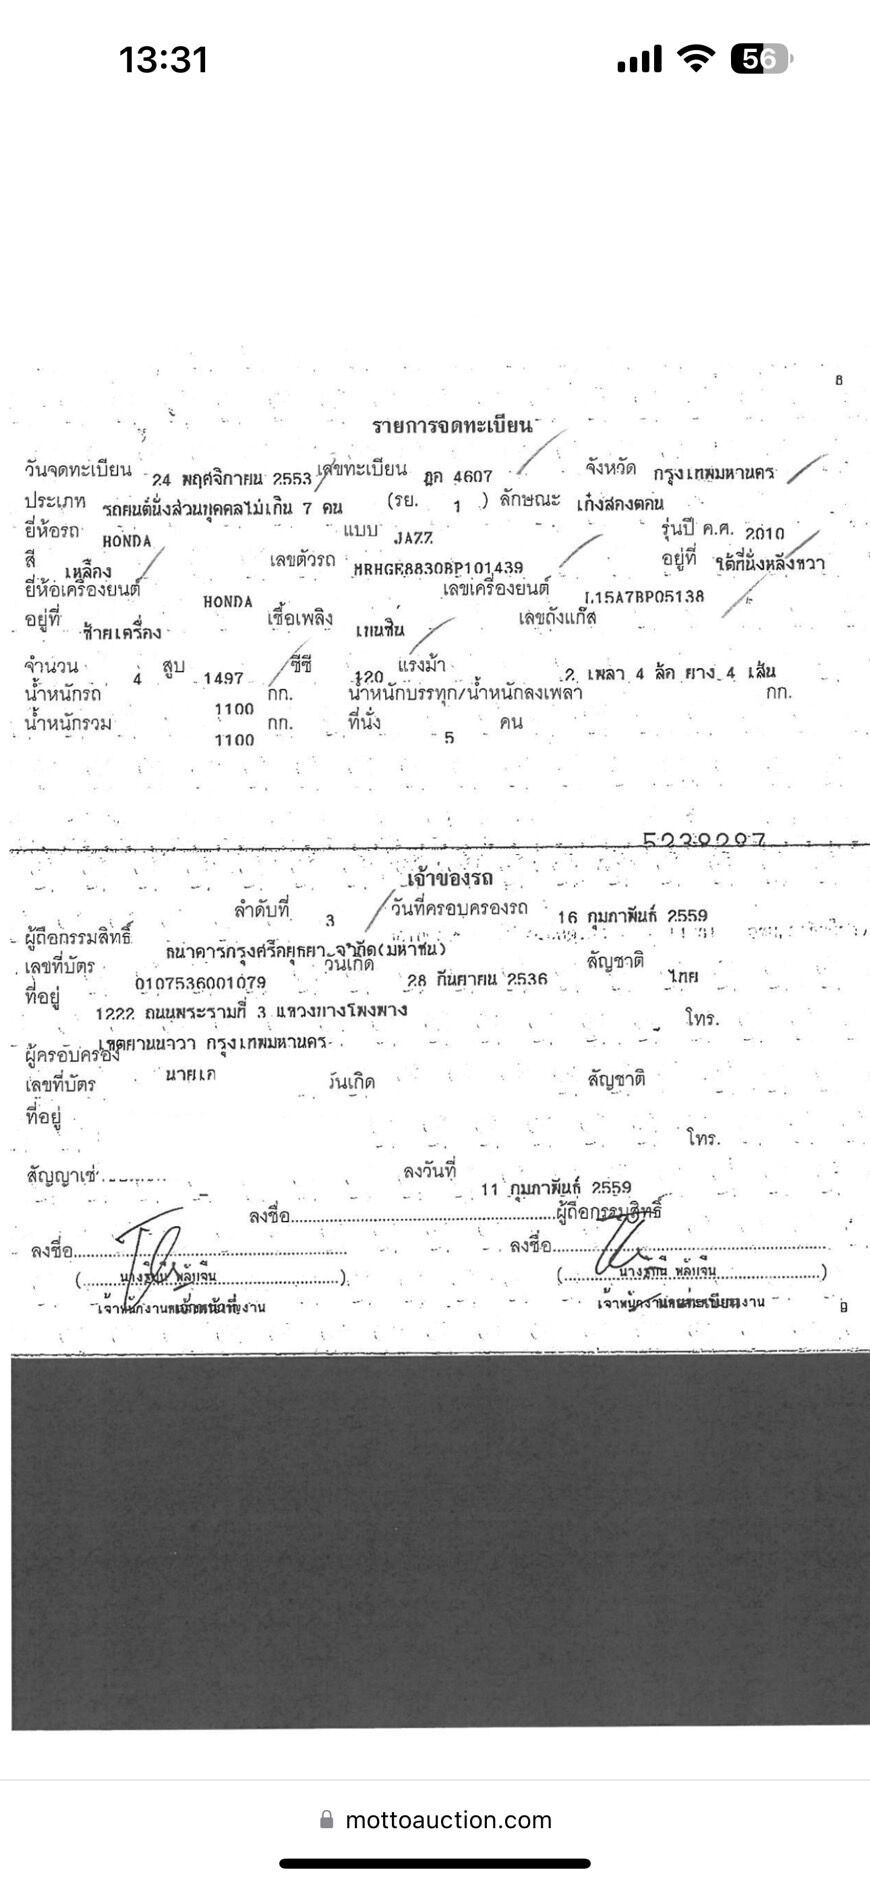 13:31
56
8
รายการจดทะเบียน
วันจดทะเบียน 24 พฤศจิกายน 2553 เลขทะเบียน ฎค 4607 จังหวัด กรุงเทพมหานคร
ประเภท รถยนต์นั่งส่วนบุคคลไม่เกิน 7 คน (รย. 1 ) ลักษณะ เก๋งสองตอน
ยี่ห้อรถ HONDA แบบ JAZZ รุ่นปี ค.ศ. 2010
สี เหลือง เลขตัวรถ MRHGE8830BP101439 อยู่ที่ ใต้ที่นั่งหลังขวา
ยี่ห้อเครื่องยนต์ HONDA เลขเครื่องยนต์ L15A7BP05138
อยู่ที่ ซ้ายเครื่อง เชื้อเพลิง เบนซิน เลขถังแก๊ส
จำนวน 4 สูบ 1497 ซีซี 120 แรงม้า 2 เพลา 4 ล้อ ยาง 4 เส้น
น้ำหนักรถ 1100 กก. น้ำหนักบรรทุก/น้ำหนักลงเพลา กก.
น้ำหนักรวม 1100 กก. ที่นั่ง 5 คน
เจ้าของรถ
ลำดับที่ 3 วันที่ครอบครองรถ 16 กุมภาพันธ์ 2559
ผู้ถือกรรมสิทธิ์ ธนาคารกรุงศรีอยุธยา จำกัด(มหาชน)
เลขที่บัตร 0107536001079 วันเกิด 28 กันยายน 2536 สัญชาติ ไทย
ที่อยู่ 1222 ถนนพระรามที่ 3 แขวงบางโพงพาง
เขตยานนาวา กรุงเทพมหานคร โทร.
ผู้ครอบครอง
เลขที่บัตร วันเกิด สัญชาติ
ที่อยู่
โทร.
ลงวันที่ 11 กุมภาพันธ์ 2559
ลงชื่อ ผู้ถือกรรมสิทธิ์
ลงชื่อ ลงชื่อ
9
mottoauction.com